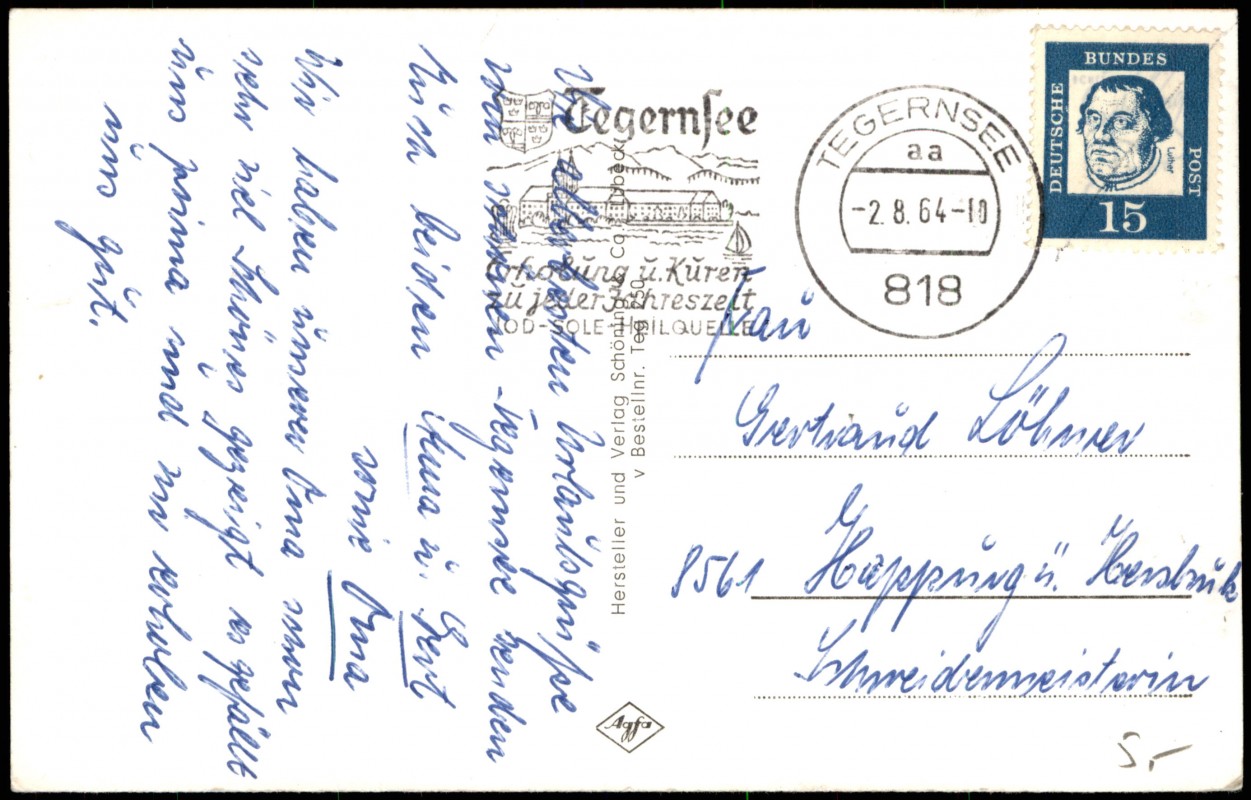 Die allerbesten Urlaubsgrüße
vom schönen Tegernsee senden
Euch beiden Anna u. Gert
sowie Oma
Wir haben unserer Oma schon
sehr viel Schönes gezeigt es gefällt
uns prima und wir erholen
uns gut.
Tegernsee
Erholung u. Kuren
zu jeder Jahreszeit
JOD-SOLE-HEILQUELLE
TEGERNSEE
aa
-2.8.64-10
818
DEUTSCHE BUNDES POST
Luther
15
Hersteller und Verlag Schöning & Co., Lübeck
v Bestellnr. Teg 250
Agfa
Frau
Gertraud Löhner
8561 Happurg ü. Hersbruck
Schneidermeisterin
5,-